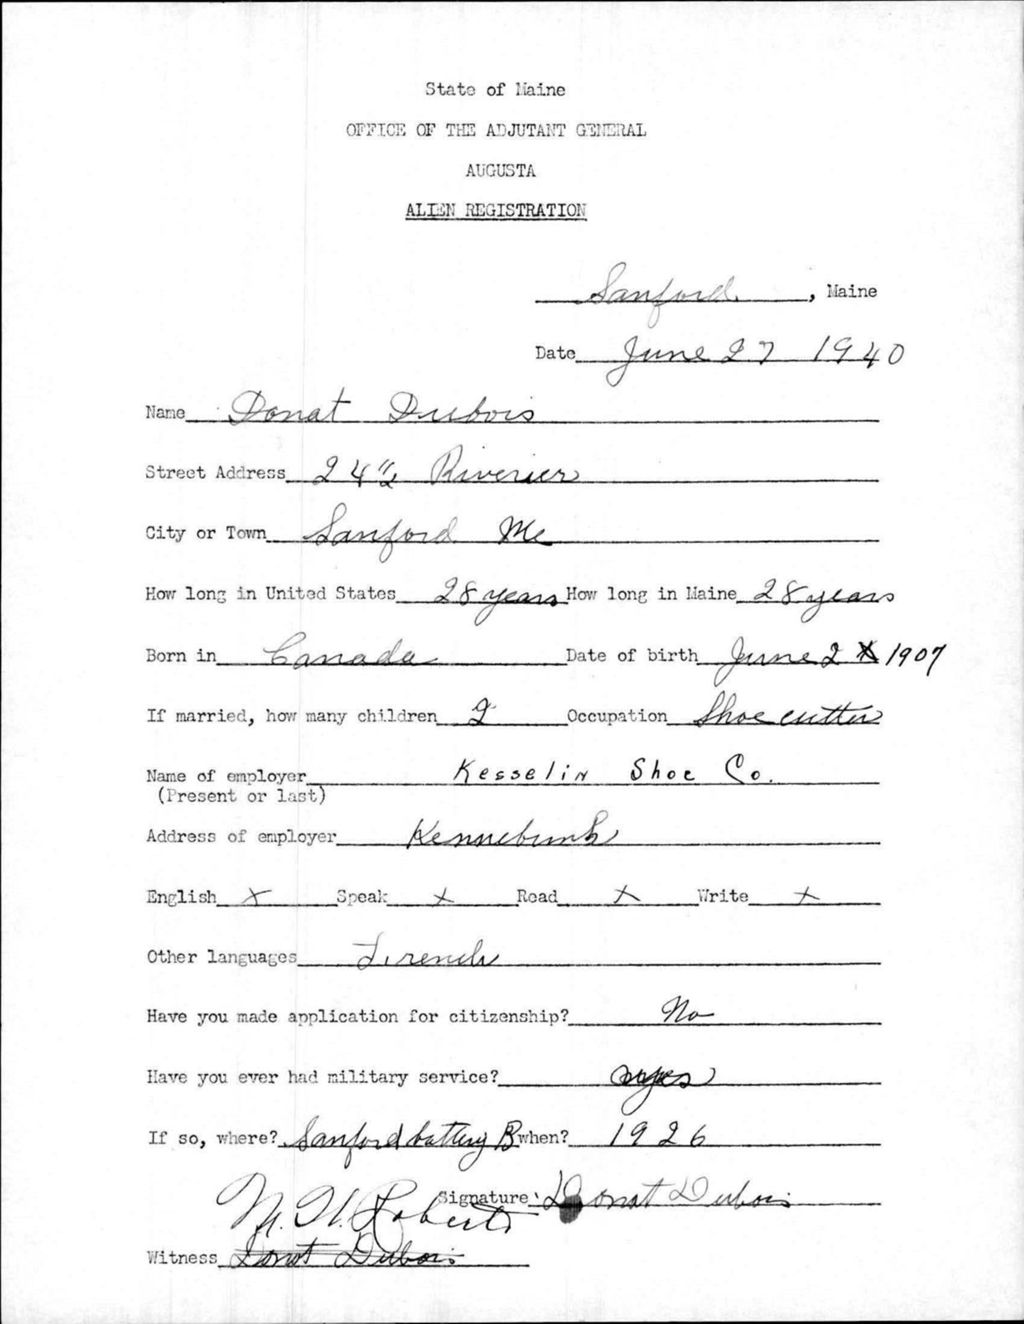 State of Maine
OFFICE OF THE ADJUTANT GENERAL
AUGUSTA
ALIEN REGISTRATION
Sanford, Maine
Date June 27 1940
Name Donat Dubois
Street Address 24 1/2 Riverier
City or Town Sanford Me
How long in United States 28 years How long in Maine 28 years
Born in Canada Date of birth June 2 1907
If married, how many children 2 Occupation Shoe cutter
Name of employer Kesselin Shoe Co.
(Present or last)
Address of employer Kennebunk
English x Speak x Read x Write x
Other languages French
Have you made application for citizenship? No
Have you ever had military service? yes
If so, where? Sanford battery B when? 1926
Signature Donat Dubois
M. H. Roberts
Witness Donat Dubois